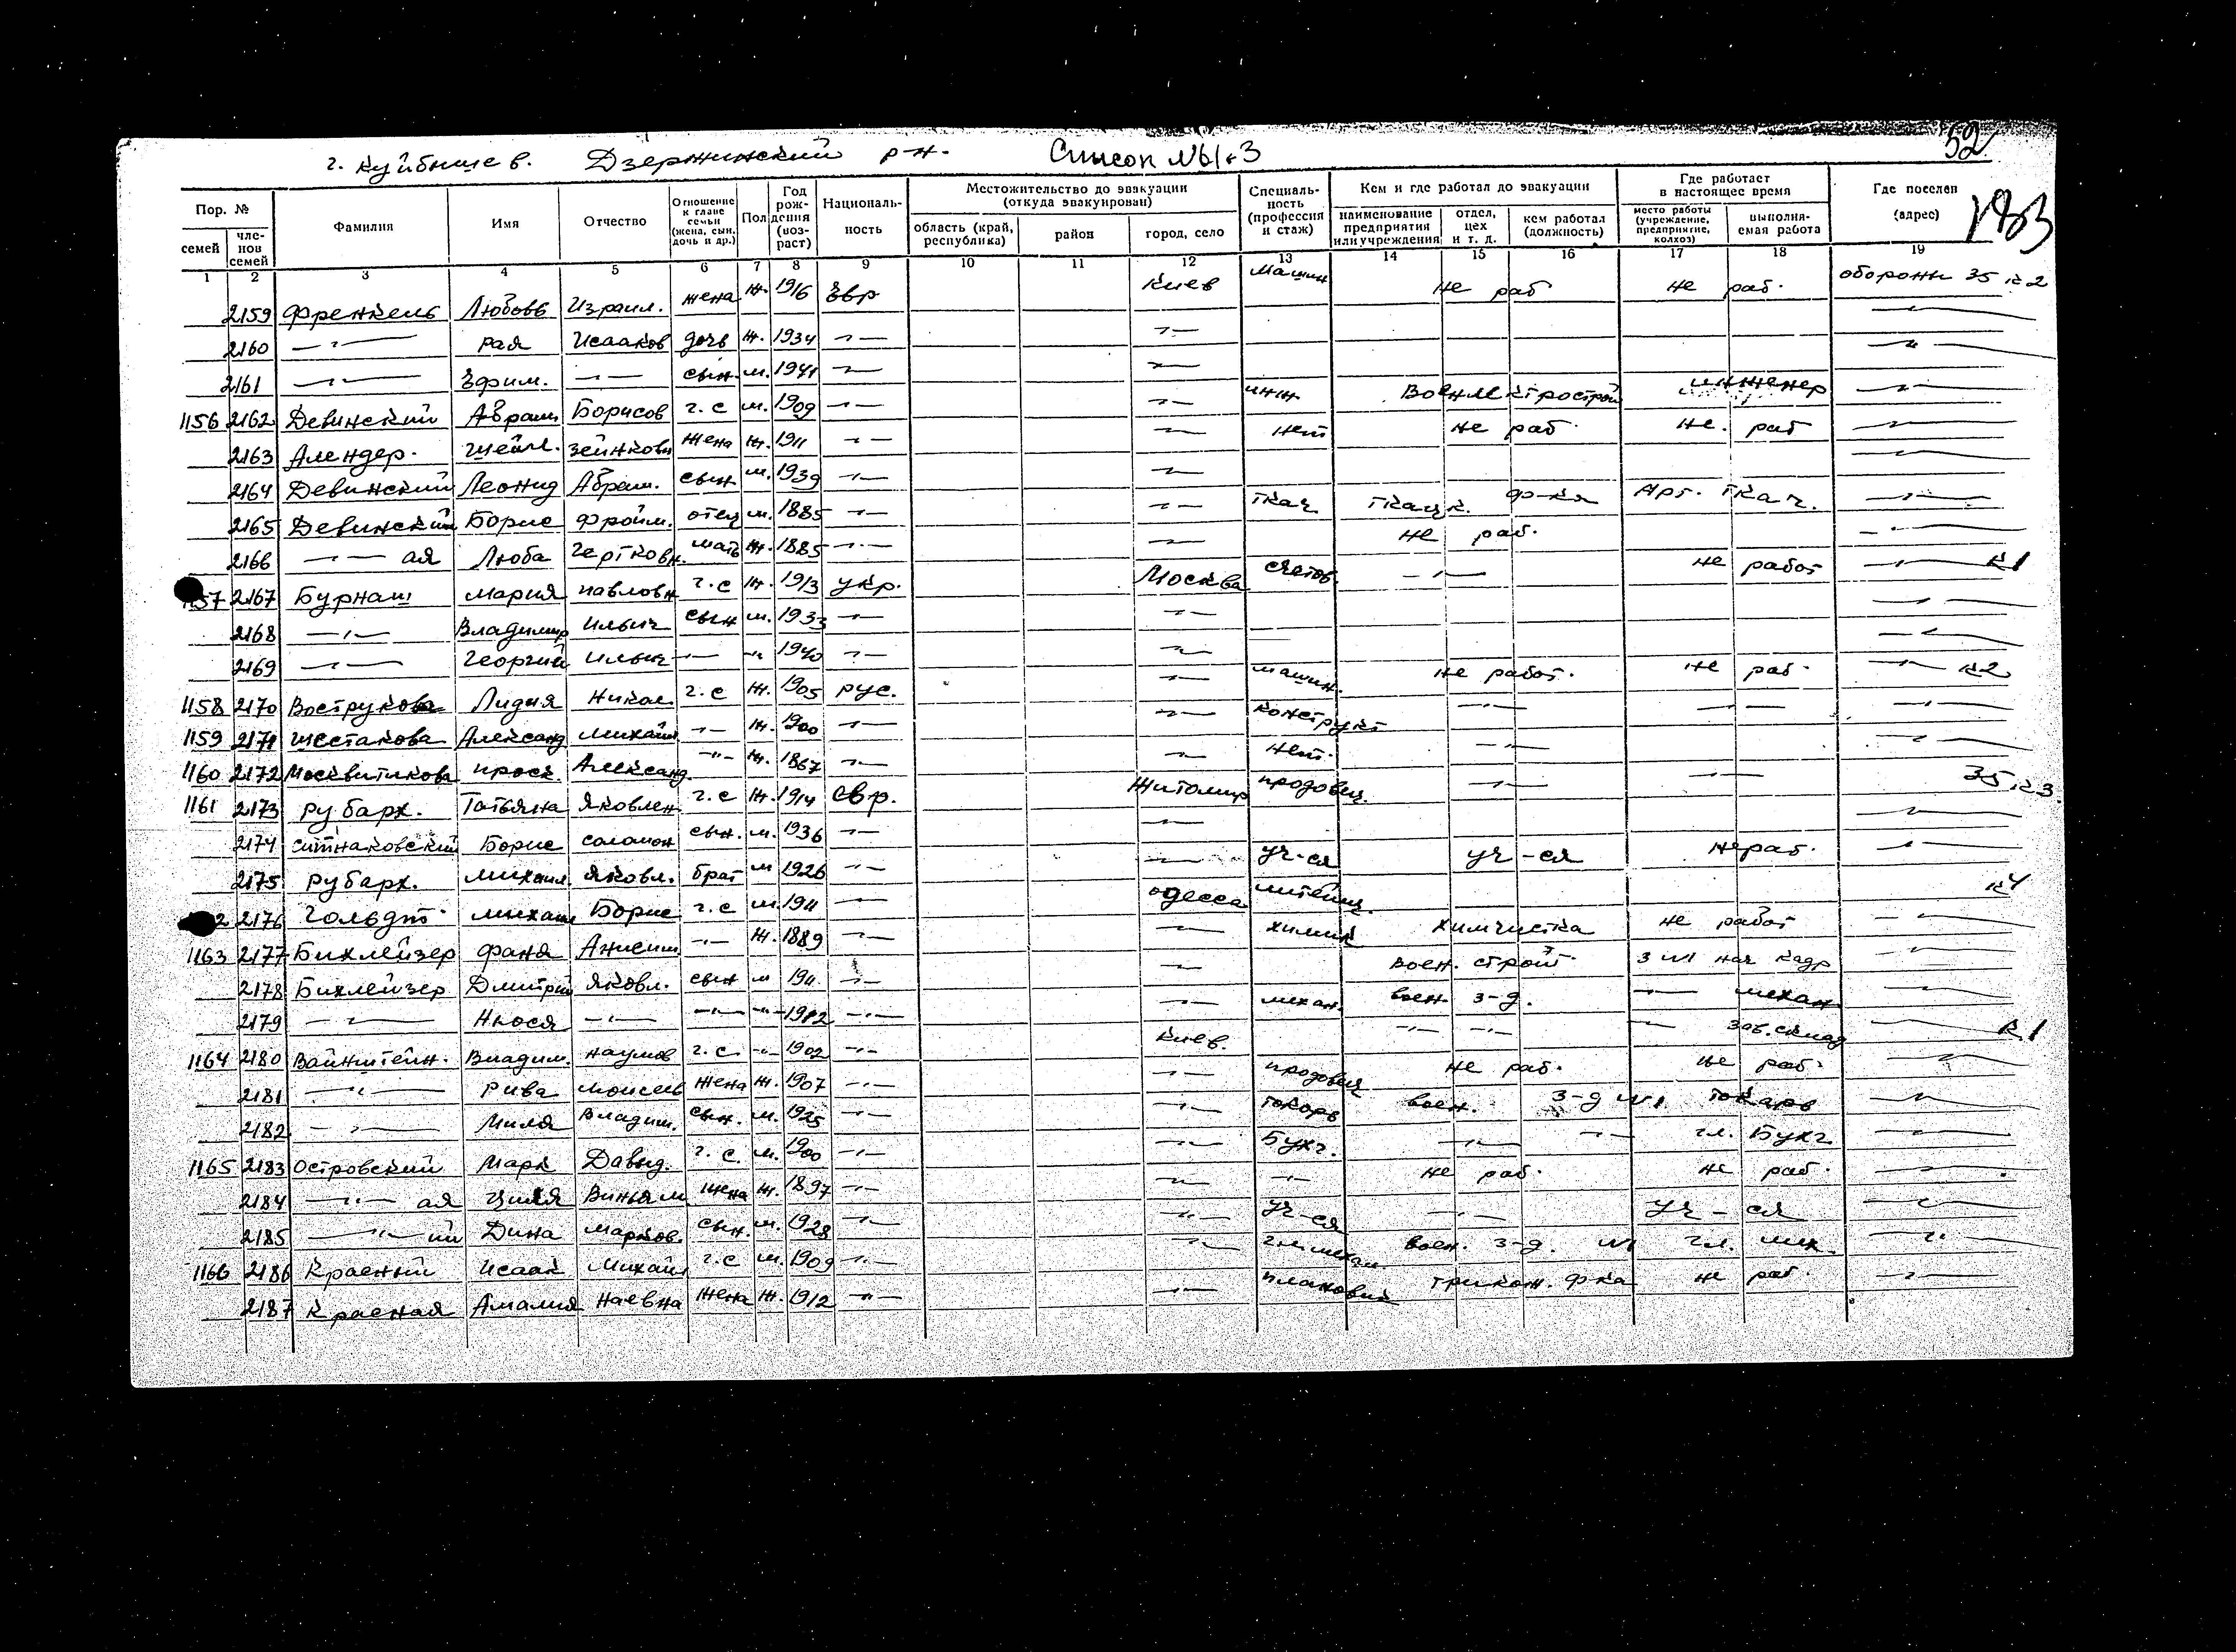 52
г. Куйбышев. Дзержинский р-н. Список №61-3
183
Пор. № Фамилия Имя Отчество Отношение к главе семьи (жена, сын, дочь и др.) Пол Год рождения (возраст) Националь-ность Местожительство до эвакуации (откуда эвакуирован) Специаль-ность (профессия и стаж) Кем и где работал до эвакуации Где работает в настоящее время Где поселен (адрес)
семей чле-нов семей область (край, республика) район город, село наименование предприятия или учреждения отдел, цех и т. д. кем работал (должность) место работы (учреждение, предприятие, колхоз) выполня-емая работа
1 2 3 4 5 6 7 8 9 10 11 12 13 14 15 16 17 18 19
2159 Френкель Любовь Израил. жена ж. 1916 Евр Киев машин не раб не раб. обороны 35 к 2
2160 —"— Рая Исааков дочь ж. 1934 —"— —"— —"—
2161 —"— Ефим. —"— сын. м. 1941 —"— —"— —"—
1156 2162 Девинский Абрам Борисов г. с м. 1909 —"— —"— инж Военэлектрострой инженер —"—
2163 Алендер. Шейл. Зейнкови жена ж. 1911 —"— —"— нет не раб. не. раб —"—
2164 Девинский Леонид Абрам. сын м. 1939 —"— —"— —"—
2165 Девинский Борис Фроим. отец м. 1885 —"— —"— ткач ткацк. ф-ка Арт. ткач. —"—
2166 —"— ая Люба Гертковн. мать ж. 1885 —"— —"— не раб. —"—
1157 2167 Бурнаш Мария Павловн г. с ж. 1913 укр. Москва счетов. —"— не работ —"— к 1
2168 —"— Владимир Ильич сын м. 1933 —"— —"— —"—
2169 —"— Георгий Ильич —"— —"— 1940 —"— —"— —"—
1158 2170 Вострукова Лидия Никол. г. с ж. 1905 рус. —"— машин. не работ. не раб. —"— к 2
1159 2171 Шестакова Александ Михайл —"— ж. 1900 —"— —"— конструкт —"— —"— —"—
1160 2172 Москвитикова Проск. Александ. —"— ж. 1867 —"— —"— нет. —"— —"—
1161 2173 Рубарх. Татьяна Яковлен. г. с ж. 1914 Евр. Житомир продовец. —"— —"— 35 к 3.
2174 Ситнаковский Борис Соломон сын. м. 1936 —"— —"— —"—
2175 Рубарх. Михаил. Яковл. брат м 1926 —"— —"— уч-ся уч-ся не раб. —"—
2 2176 Гольдт. Михаил Борис г. с м. 1911 —"— Одесса литейщ. к 4
1163 2177 Бихлейзер Фаня Анисим. —"— ж. 1889 —"— —"— химик химчистка не работ —"—
2178 Бихлейзер Дмитрий Яковл. сын м 1911 —"— —"— воен. строит. з №1 нач кадр —"—
2179 —"— Нюся —"— —"— —"— 1912 —"— —"— механ. воен. з-д. —"— механ —"—
1164 2180 Вайнштейн. Владим. Наумов г. с. —"— 1902 —"— Киев. —"— —"— —"— зав. склад —"— к. 1
2181 —"— Рива Моисеев жена ж. 1907 —"— —"— продовец не раб. не раб. —"—
2182 —"— Миля Владим. сын. м. 1925 —"— —"— токарь воен. з-д №1 токарь —"—
1165 2183 Островский Марк Давид. г. с. м. 1900 —"— —"— Бухг. —"— —"— гл. Бухг. —"—
2184 —"— ая Циля Виньям. жена ж. 1897 —"— —"— —"— не раб. не раб. —"—
2185 —"— ий Дина Марков. сын. м. 1928 —"— —"— уч-ся —"— уч-ся —"—
1166 2186 Красный Исаак Михайл г. с м. 1909 —"— —"— гл. механ воен. з-д. №1 гл. мех. —"—
2187 Красная Амалия Наевна жена ж. 1912 —"— —"— плановик трикот. ф-ка не раб. —"—